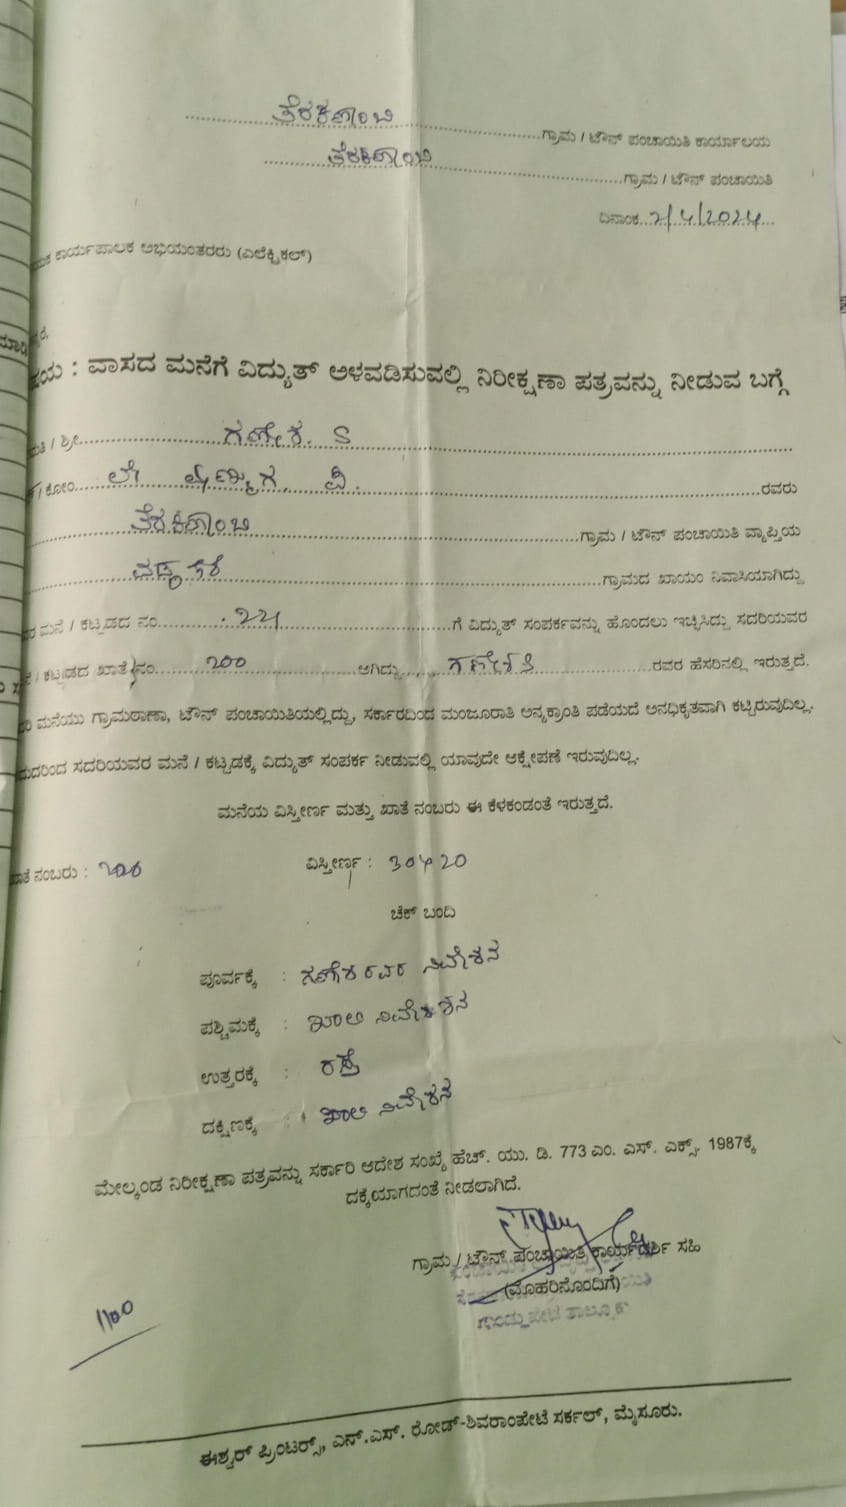 ತೆರಕಣಾಂಬಿ ಗ್ರಾಮ / ಟೌನ್ ಪಂಚಾಯಿತಿ ಕಾರ್ಯಾಲಯ
ತೆರಕಣಾಂಬಿ ಗ್ರಾಮ / ಟೌನ್ ಪಂಚಾಯಿತಿ
ದಿನಾಂಕ 2/4/2024
ಕಾರ್ಯಪಾಲಕ ಅಭಿಯಂತರರು (ಎಲೆಕ್ಟ್ರಿಕಲ್)
: ವಾಸದ ಮನೆಗೆ ವಿದ್ಯುತ್ ಅಳವಡಿಸುವಲ್ಲಿ ನಿರೀಕ್ಷಣಾ ಪತ್ರವನ್ನು ನೀಡುವ ಬಗ್ಗೆ
/ ಶ್ರೀ ಗಣೇಶ. S
/ ಕೋಂ ಲೇ ವಿ. ರವರು
ತೆರಕಣಾಂಬಿ ಗ್ರಾಮ / ಟೌನ್ ಪಂಚಾಯಿತಿ ವ್ಯಾಪ್ತಿಯ
ಗ್ರಾಮದ ಖಾಯಂ ನಿವಾಸಿಯಾಗಿದ್ದು
ಮನೆ / ಕಟ್ಟಡದ ನಂ. ಗೆ ವಿದ್ಯುತ್ ಸಂಪರ್ಕವನ್ನು ಹೊಂದಲು ಇಚ್ಛಿಸಿದ್ದು ಸದರಿಯವರ
/ ಕಟ್ಟಡದ ಖಾತೆ ನಂ. 200 ಆಗಿದ್ದು ರವರ ಹೆಸರಿನಲ್ಲಿ ಇರುತ್ತದೆ.
ಮನೆಯು ಗ್ರಾಮಠಾಣಾ, ಟೌನ್ ಪಂಚಾಯಿತಿಯಲ್ಲಿದ್ದು, ಸರ್ಕಾರದಿಂದ ಮಂಜೂರಾತಿ ಅನ್ಯಕ್ರಾಂತಿ ಪಡೆಯದೆ ಅನಧಿಕೃತವಾಗಿ ಕಟ್ಟಿರುವುದಿಲ್ಲ.
ಸದರಿಯವರ ಮನೆ / ಕಟ್ಟಡಕ್ಕೆ ವಿದ್ಯುತ್ ಸಂಪರ್ಕ ನೀಡುವಲ್ಲಿ ಯಾವುದೇ ಆಕ್ಷೇಪಣೆ ಇರುವುದಿಲ್ಲ.
ಮನೆಯ ವಿಸ್ತೀರ್ಣ ಮತ್ತು ಖಾತೆ ನಂಬರು ಈ ಕೆಳಕಂಡಂತೆ ಇರುತ್ತದೆ.
ನಂಬರು : 200 ವಿಸ್ತೀರ್ಣ : 30×20
ಚೆಕ್ ಬಂದಿ
ಪೂರ್ವಕ್ಕೆ : ಗಣೇಶ ರವರ ನಿವೇಶನ
ಪಶ್ಚಿಮಕ್ಕೆ : ಖಾಲಿ ನಿವೇಶನ
ಉತ್ತರಕ್ಕೆ : ರಸ್ತೆ
ದಕ್ಷಿಣಕ್ಕೆ : ಖಾಲಿ ನಿವೇಶನ
ಮೇಲ್ಕಂಡ ನಿರೀಕ್ಷಣಾ ಪತ್ರವನ್ನು ಸರ್ಕಾರಿ ಆದೇಶ ಸಂಖ್ಯೆ ಹೆಚ್. ಯು. ಡಿ. 773 ಎಂ. ಎಸ್. ಎಕ್ಸ್. 1987ಕ್ಕೆ
ದಕ್ಕೆಯಾಗದಂತೆ ನೀಡಲಾಗಿದೆ.
ಗ್ರಾಮ / ಟೌನ್ ಪಂಚಾಯಿತಿ ಕಾರ್ಯದರ್ಶಿ ಸಹಿ
(ಮೊಹರಿನೊಂದಿಗೆ)
1100
ಈಶ್ವರ್ ಪ್ರಿಂಟರ್ಸ್, ಎನ್.ಎಸ್. ರೋಡ್-ಶಿವರಾಂಪೇಟೆ ಸರ್ಕಲ್, ಮೈಸೂರು.